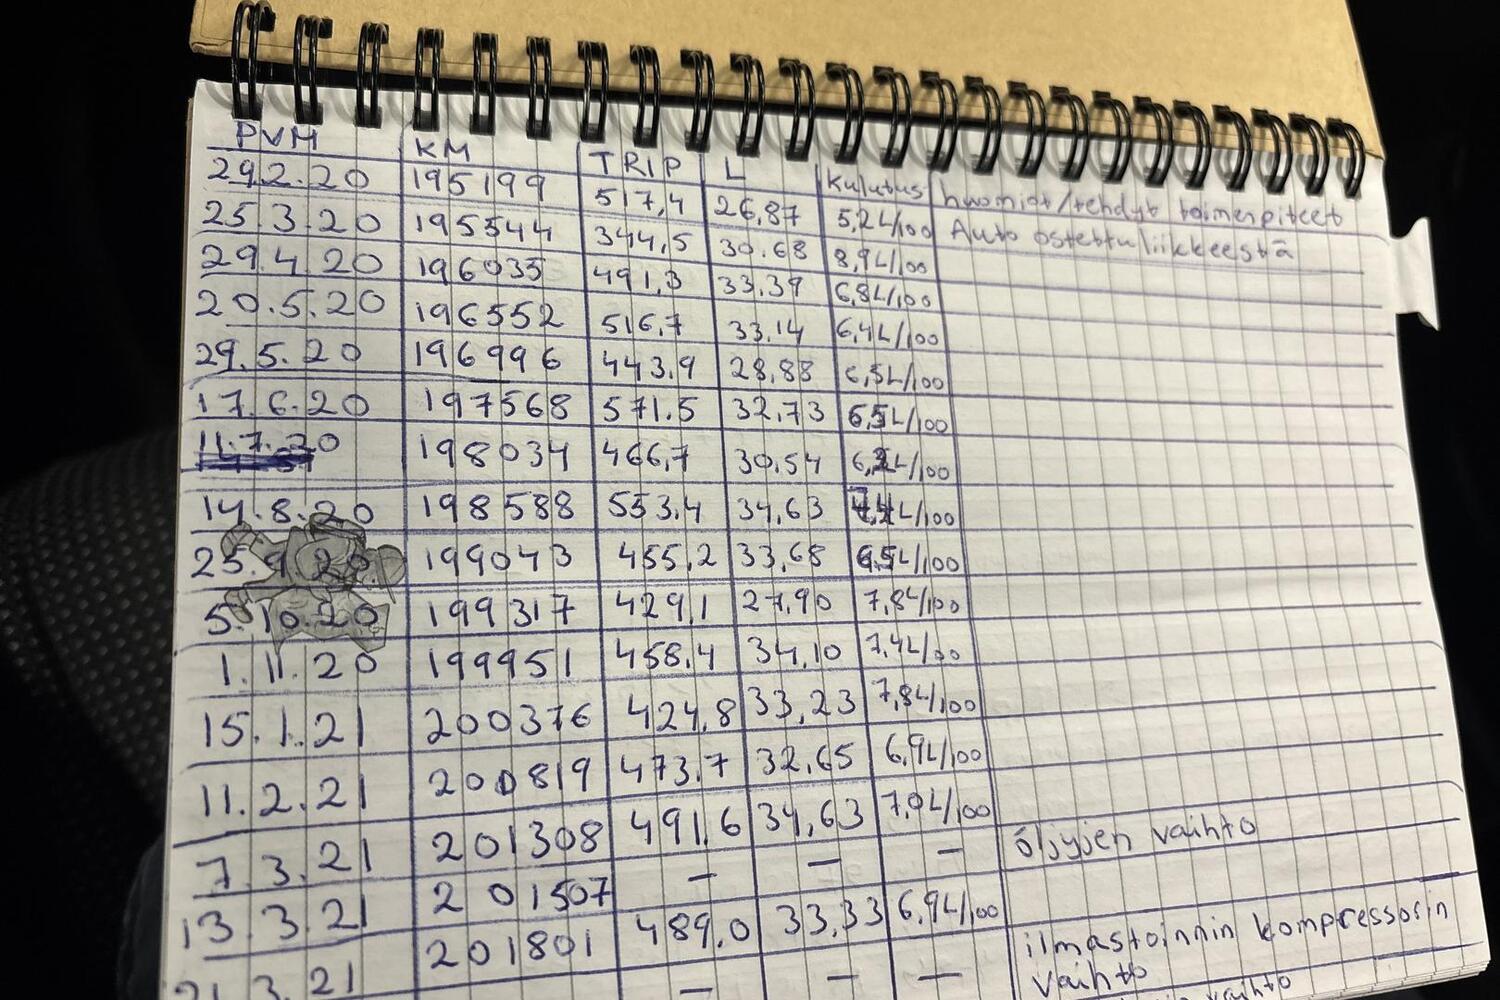 PVM KM TRIP L Kulutus huomiot/tehdyt toimenpiteet
29.2.20 195199 517,4 26,87 5,2L/100 Auto ostettu liikkeestä
25.3.20 195544 344,5 30.68 8,9L/100
29.4.20 196035 491,3 33,39 6,8L/100
20.5.20 196552 516,7 33,14 6,4L/100
29.5.20 196996 443,9 28,88 6,5L/100
17.6.20 197568 571.5 32,73 L/100
11.7.20 198034 466,7 30,54 L/100
14.8.20 198588 553,4 34,63 L/100
25.9.20 199043 455,2 33,68 L/100
5.10.20 199317 429,1 27,90 7,8L/100
1.11.20 199951 458,4 34,10 7,4L/100
15.1.21 200376 424,8 33,23 7,8L/100
11.2.21 200819 473,7 32,65 6,9L/100
7.3.21 201308 491,6 34,63 7,0L/100
13.3.21 201507 – – – öljyjen vaihto
21.3.21 201801 489,0 33,33 6,9L/100
– – – ilmastoinnin kompressorin
vaihto
vaihto